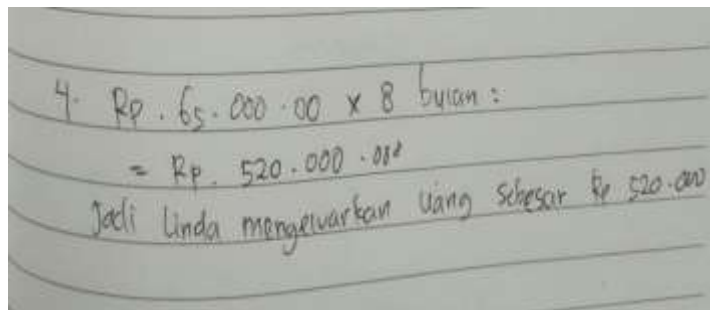 4. Rp. 65.000.00 x 8 bulan :
= Rp. 520.000.000
Jadi Linda mengeluarkan uang sebesar Rp 520.000